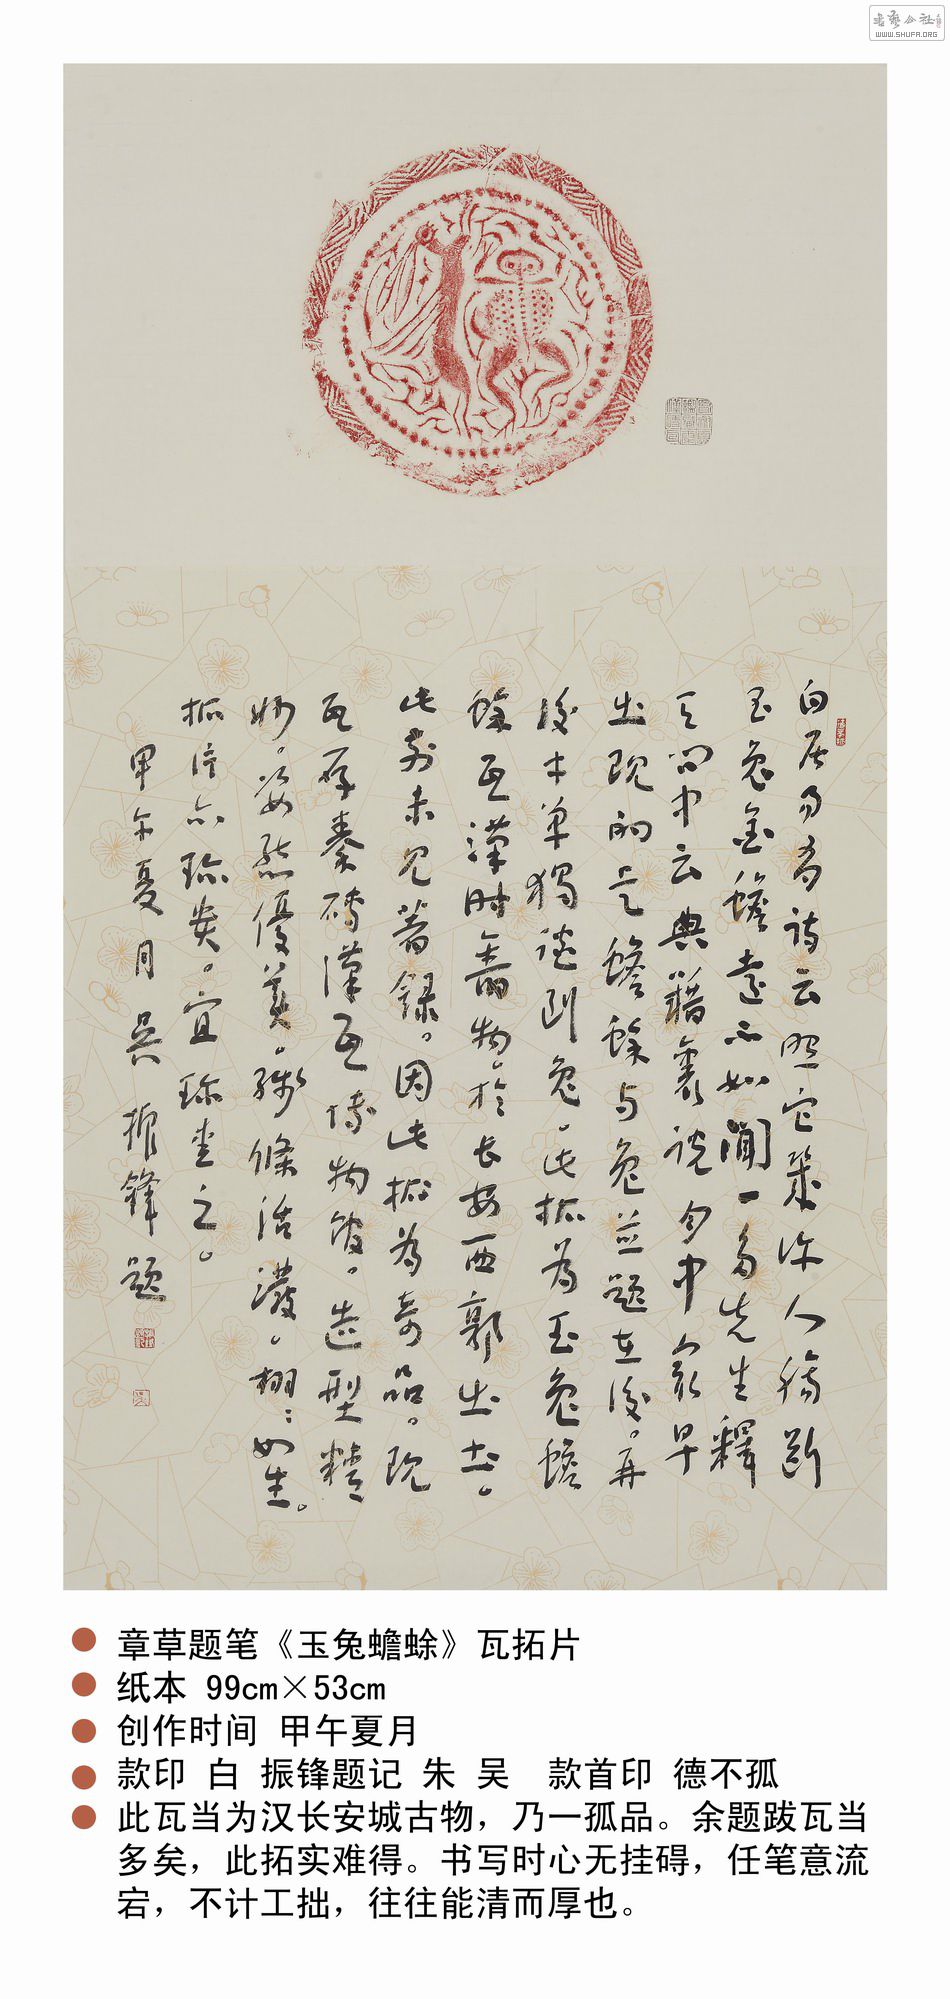 书艺公社
WWW.SHUFA.ORG
白居易有诗云照它几许人腸断
玉兔金蟾遠不知聞一多先生釋
天問中云典籍裏說月中最早
出現的是蟾蜍与兔並題在後再
後才單獨談到兔此拓为玉兔蟾
蜍瓦漢时舊物於长安西郭出土
此前未見著録因此拓为奇品既
瓦存秦磚漢瓦博物館造型精
妙姿態優美线條活潑栩栩如生
拓片亦珍贵宜珍重之
甲午夏月吴振鋒題
章草题笔《玉兔蟾蜍》瓦拓片
纸本 99cm×53cm
创作时间 甲午夏月
款印 白 振锋题记 朱 吴 款首印 德不孤
此瓦当为汉长安城古物，乃一孤品。余题跋瓦当
多矣，此拓实难得。书写时心无挂碍，任笔意流
宕，不计工拙，往往能清而厚也。